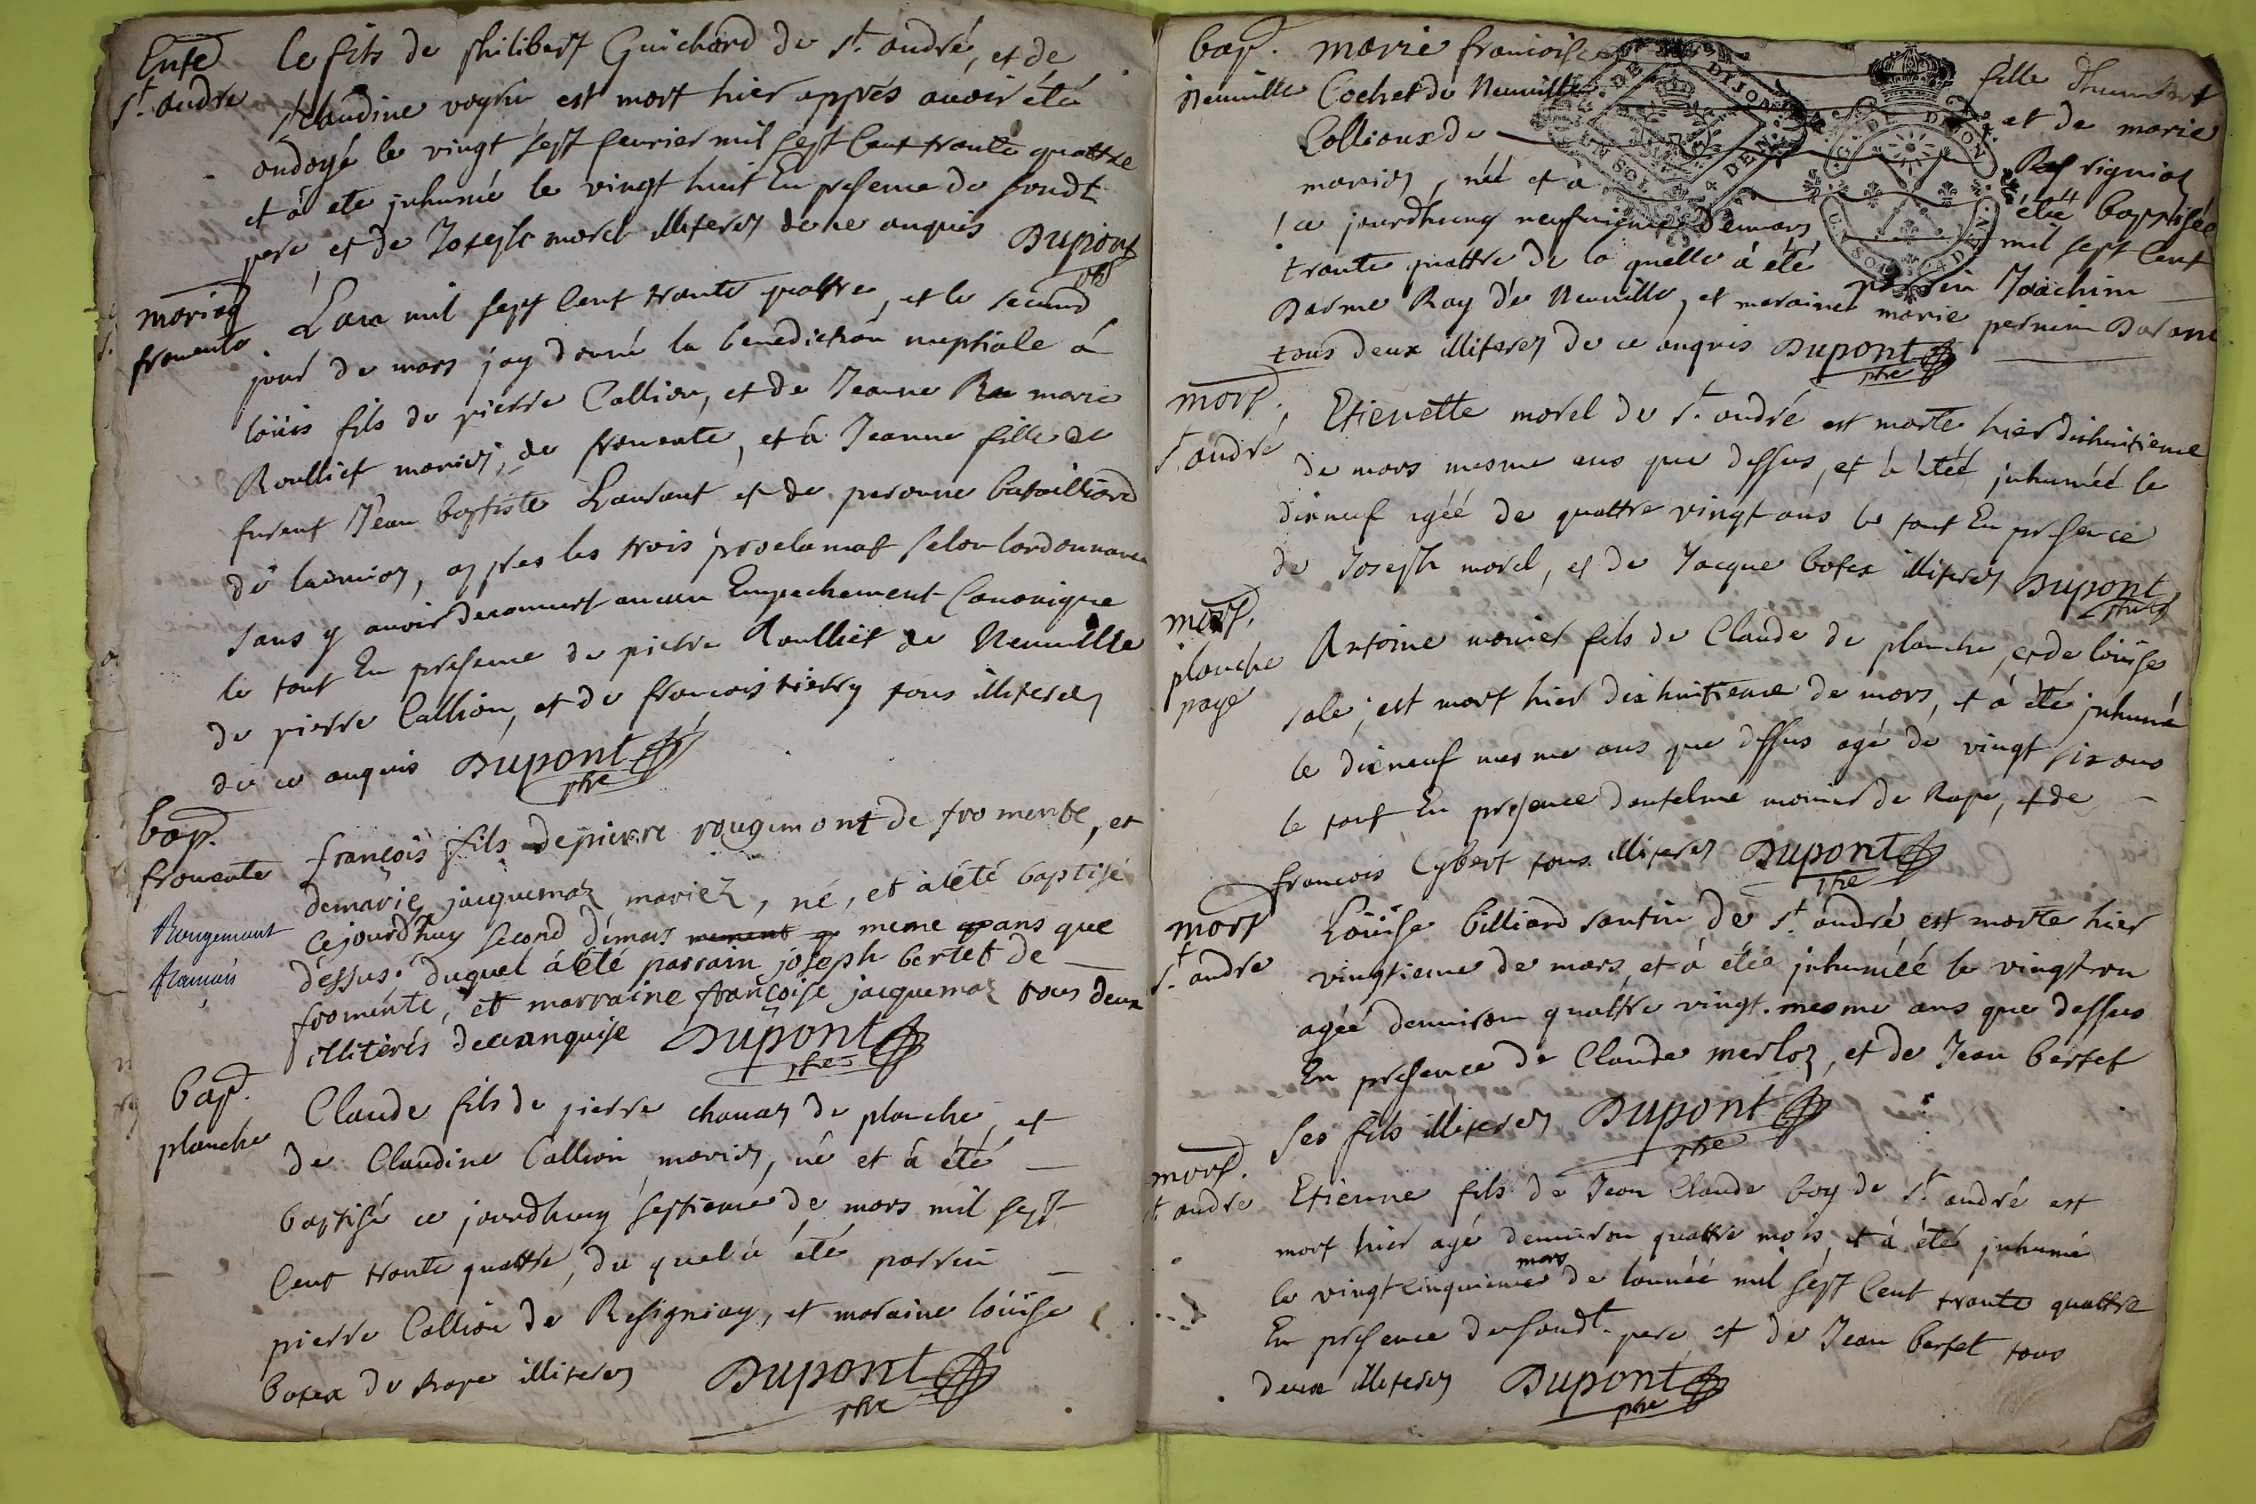 Enté le fils de philibert Guichard de st. andré, et de
st. andre claudine voyrin est mort hier apprés avoir été
ondoyé le vingt sept fevrier mil sept Cent trante quattre
et á ete jnhumé le vingt huit En presence du susdt
pere et de Joseph morel illiterez de ce anquis Dupont
ptre
mariag Lan mil sept Cent trante quattre, et le second
fromente jour de mars jay donné la benediction nuptiale á
loüis fils de pierre Callion, et de Jeanne marie
Roulliet mariez, de fromente, et á Jeanne fille de
furent Jean baptiste Laurant et de peronne bataillard
de , appres les trois proclamat selon lordonnance
sans y avoir decouvert aucun Empechement Canonique
le tout En presence de pierre Roulliet de Neuville
de pierre Callion, et de francois tierry tous illiterez
de ce anquis Dupont
ptre
bap.
fromente françois fils de pierre rougemont de fromente, et
de marie jacquemaz mariez, né, et a été baptisé
Rougemont cejourdhuy second demars meme ans que
francois dessus; duquel á été parrain joseph bertet de
fromente, et marraine françoise jacquemaz tous deux
illiterés deceanquise Dupont
ptre
bap. Claude fils de pierre chanaz de planche et
planche de Claudine Callion mariez, né et á été
baptisé ce jourdhuy septieme de mars mil sept
Cent trante quattre, du quel á été parrin
pierre Callion de Resigniaz, et maraine loüise
botex de Rape illiterez Dupont
ptre
bap. marie francoise fille dhumbert
Neuville Cochet de Neuville et de marie
Collioux de Resigniaz
mariez, née et a étée baptisée
ce jourdhuy neufvieme demars mil sept Cent
trante quattre de la quelle á été parrin Joachim
Darme Ray de Neuville, et maraine marie pernin Darane
tous deux illiterez de ce anquis Dupont
ptre
mort. Etienette morel de st. andré est morte hier dixhuitieme
st. andré de mars mesme ans que dessus, et á étéé jnhuméé le
dixneuf agéé de quattre vingt ans le tout En presence
de Joseph morel, et de Jacque botex illiterez Dupont
ptre
mort. Antoine monier fils de Claude de planche, et de loüise
planche sale; est mort hier dixhuitieme de mars, et á été jnhumé
paye le dixneuf mesme ans que dessus agé de vingt six ans
le tout En presence dantelme monier de Rape, et de
francois Cybert tous illiterez Dupont
ptre
mort Loüise billiard santin de st. andré est morte hier
st. andre vingtieme de mars, et á étéé jnhuméé le vingt un
agéé denviron quattre vingt. mesme ans que dessus
En presence de Claude merloz, et de Jean bertet
ses fils illiterez Dupont
ptre
mort. Etienne fils de Jean Claude boy de st. andré est
st. andre mort hier agé denviron quattre mois, et á été jnhumé
mars
le vingt cinquieme de lannéé mil sept Cent trante quattre
En presence dusoudt. pere et de Jean bertet tous
deux illiterez Dupont
ptre